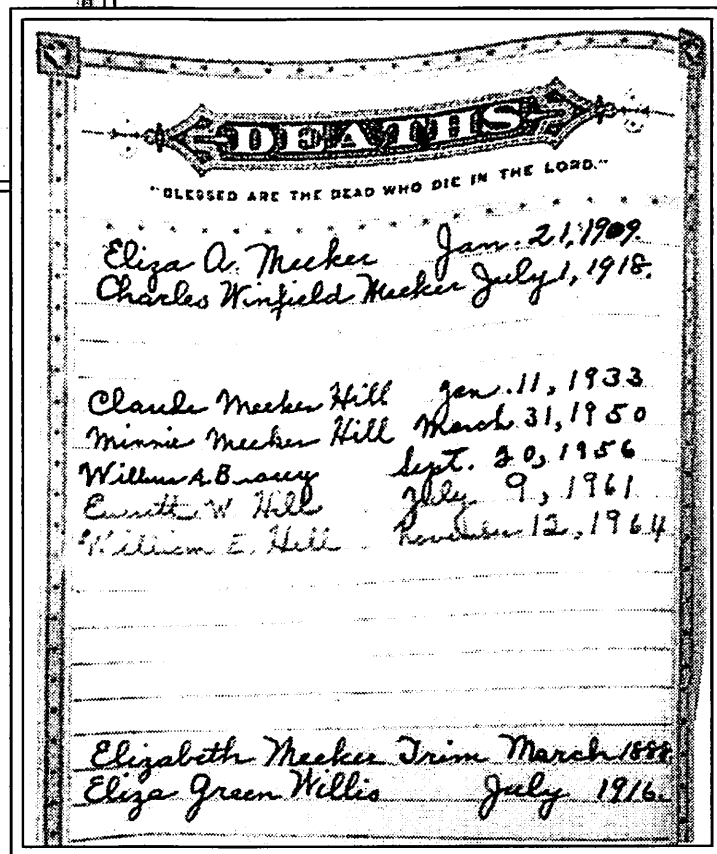 DEATHS
"BLESSED ARE THE DEAD WHO DIE IN THE LORD."
Eliza A. Meeker Jan. 21, 1909.
Charles Winfield Meeker July 1, 1918.
Claude Meeker Hill Jan. 11, 1933
Minnie Meeker Hill March 31, 1950
Wilbur A. Bracey Sept. 20, 1956
Everett W Hill July 9, 1961
William E. Hill November 12, 1964
Elizabeth Meeker Trim March 1888
Eliza Green Willis July 1916.